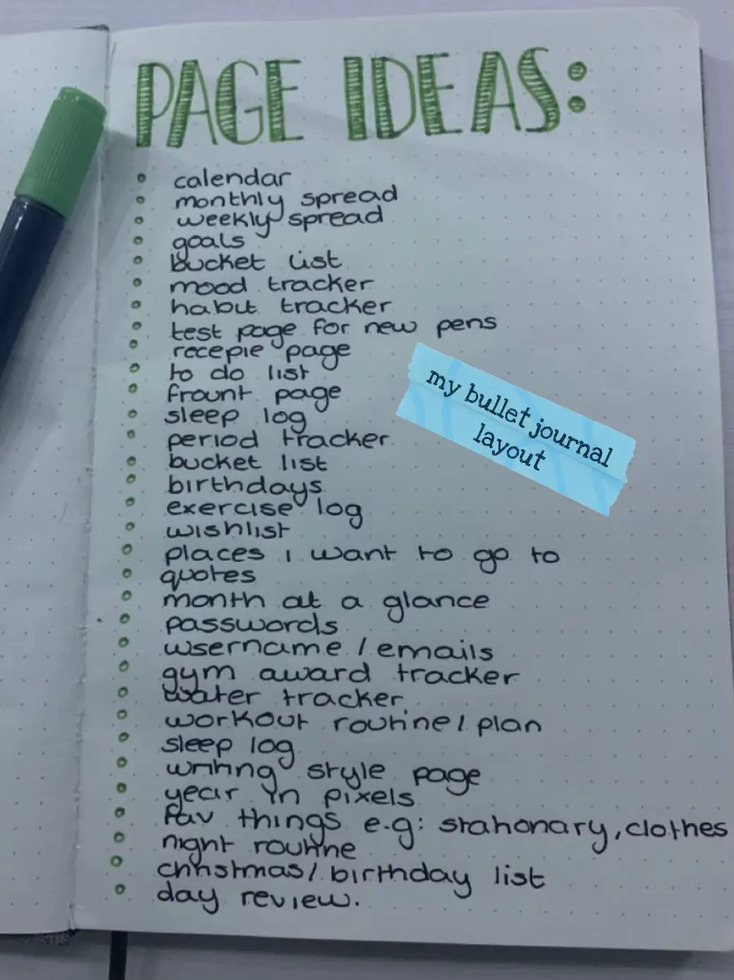 PAGE IDEAS:
calendar
monthly spread
weekly spread
goals
bucket list
mood tracker
habit tracker
test page for new pens
recepie page
to do list
frount page
my bullet journal
layout
sleep log
period tracker
bucket list
birthdays
exercise log
wishlist
places i want to go to
quotes
month at a glance
passwords
username / emails
gym award tracker
water tracker
workout routine / plan
sleep log
writing style page
year in pixels
fav things e.g: stationary, clothes
night routine
christmas / birthday list
day review.